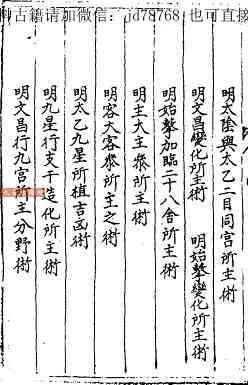 古籍请加微信：jd78768 也可直接
明太陰與太乙二目同宮所主術
明文昌變化所主術　明始擊變化所主術
明始擊加臨二十八舍所主術
明主大主參所主術
明客大客參所主之術
明太乙九星所植吉凶術
明九星行支干造化所主術
明文昌行九宮所主分野術